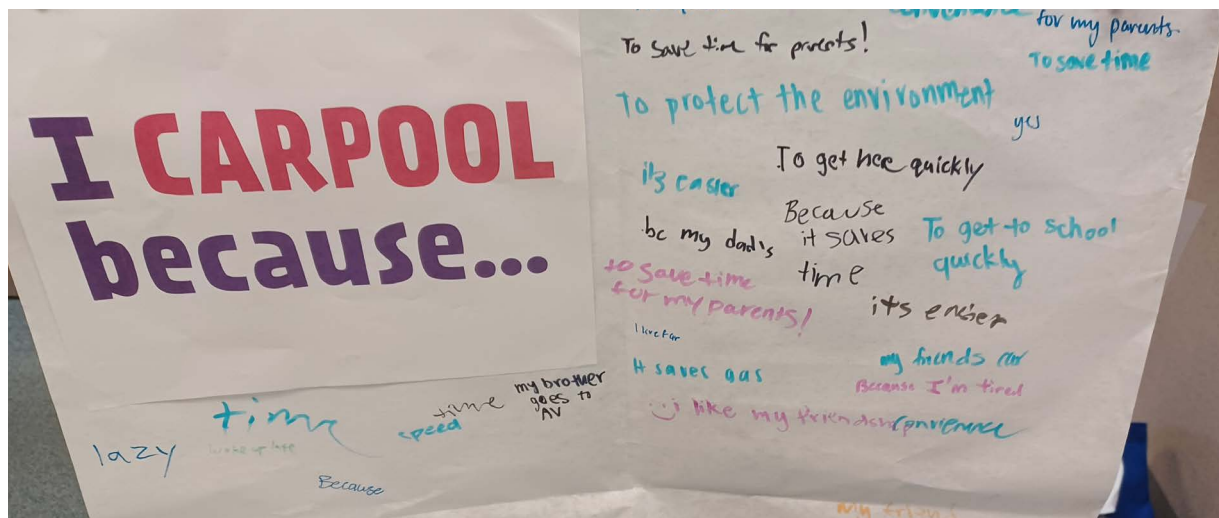 I CARPOOL
because...
for my parents.
To save time for parents!
To save time
To protect the environment
yes
To get here quickly
it's easier
Because
it saves
time
bc my dad's
To get to school
quickly
to save time
for my parents!
its easier
I live far
my friends car
It saves gas
Because I'm tired
i like my friends
convenience
my brother
goes to
AV
time
speed
time
woke up late
lazy
Because